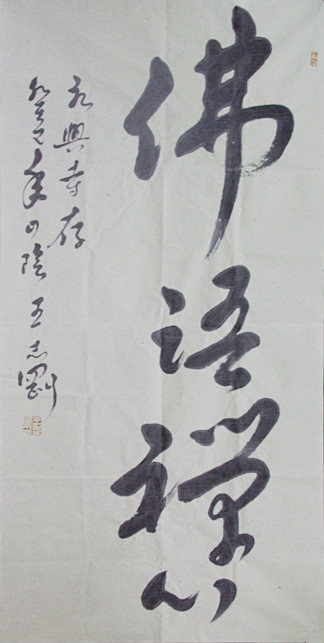 佛語禪心
永興寺存
癸巳年山陰王志剛